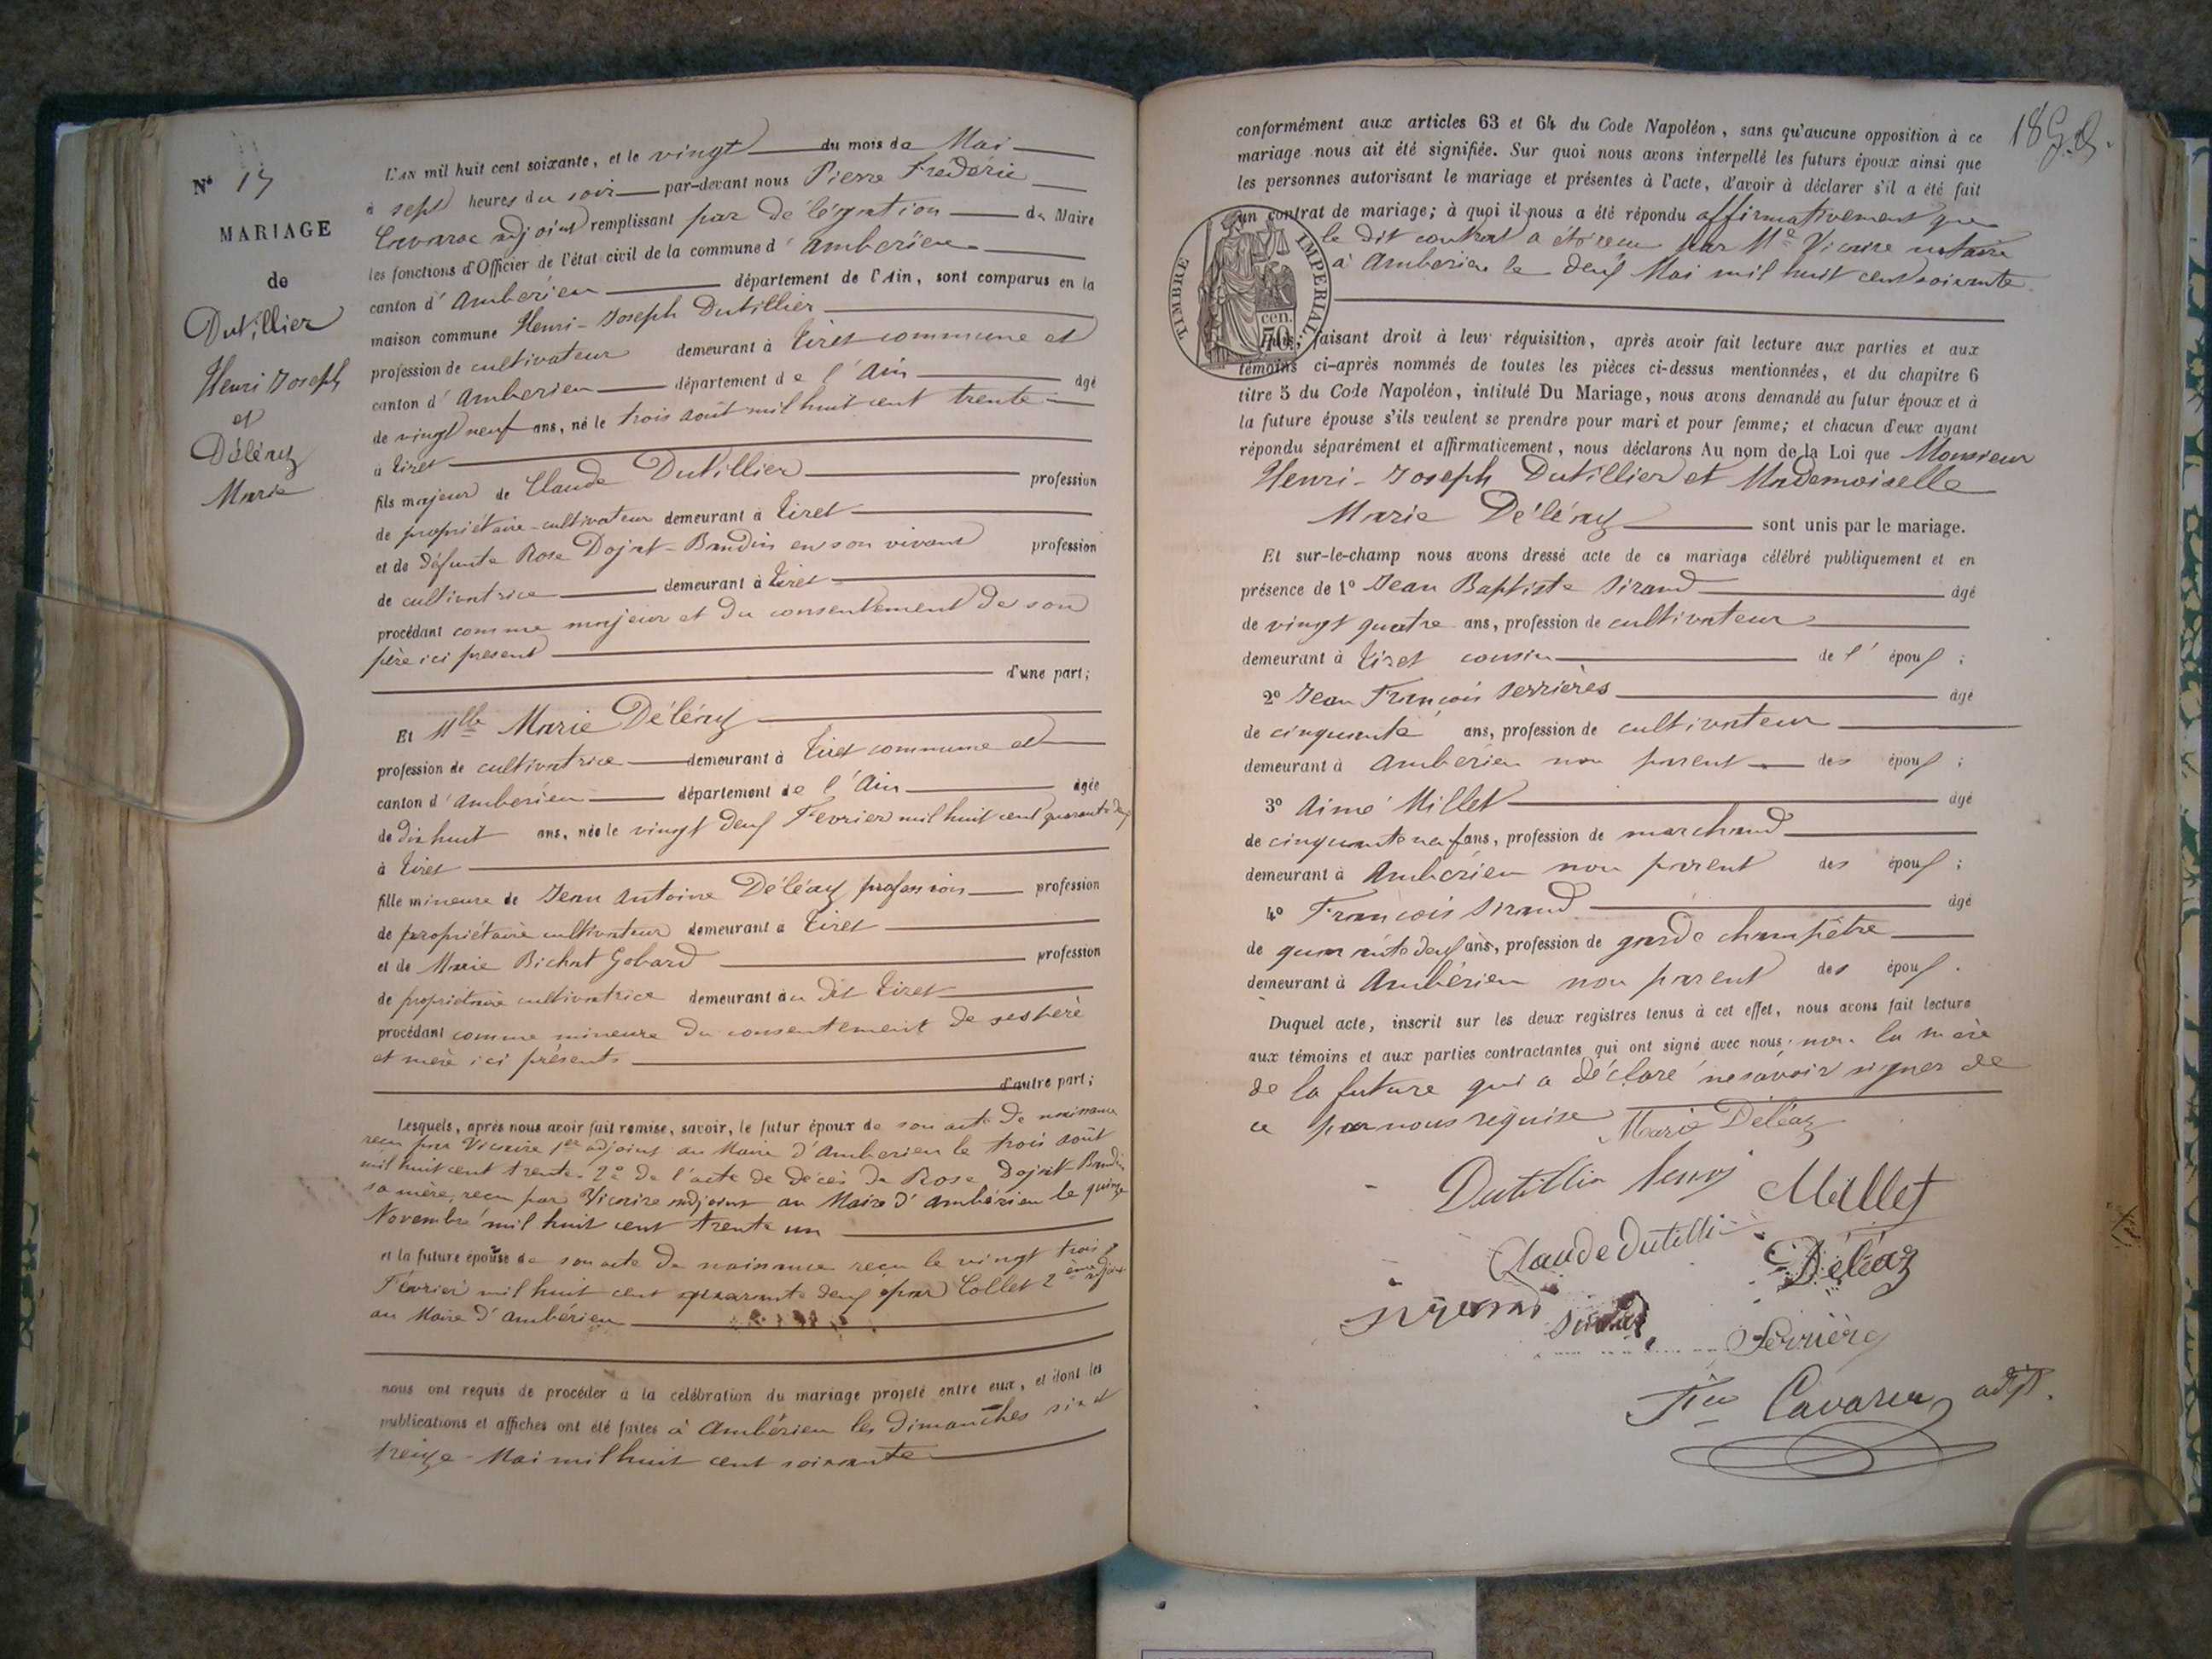 N° 17
MARIAGE
de
Dutillier
Henri Joseph
et
Déléaz
Marie
L'AN mil huit cent soixante, et le vingt du mois de Mai
à sept heures du soir par-devant nous Pierre Frédéric
Cavaroc adjoint remplissant par délégation du Maire
les fonctions d'Officier de l'état civil de la commune d'Ambérieu
canton d'Ambérieu département de l'Ain, sont comparus en la
maison commune Henri-Joseph Dutillier
profession de cultivateur demeurant à Tiret commune et
canton d'Ambérieu département de l'Ain âgé
de vingt neuf ans, né le trois août mil huit cent trente
à Tiret
fils majeur de Claude Dutillier profession
de propriétaire-cultivateur demeurant à Tiret
et de défunte Rose Dojat-Baudin en son vivant profession
de cultivatrice demeurant à Tiret
procédant comme majeur et du consentement de son
père ici présent
d'une part;
Et Mlle Marie Déléaz
profession de cultivatrice demeurant à Tiret commune et
canton d'Ambérieu département de l'Ain âgée
de dix huit ans, née le vingt deux Février mil huit cent quarante deux
à Tiret
fille mineure de Jean Antoine Déléaz profession profession
de propriétaire cultivateur demeurant à Tiret
et de Marie Bichat Gobard profession
de propriétaire cultivatrice demeurant au dit Tiret
procédant comme mineure du consentement de ses père
et mère ici présents
d'autre part;
Lesquels, après nous avoir fait remise, savoir, le futur époux de son acte de naissance
reçu par Vicaire 1er adjoint au Maire d'Ambérieu le trois août
mil huit cent trente. 2° de l'acte de décès de Rose Dojat-Baudin
sa mère, reçu par Vicaire adjoint au Maire d'Ambérieu le quinze
Novembre mil huit cent trente un
et la future épouse de son acte de naissance reçu le vingt trois
Février mil huit cent quarante deux par Collet 2ème adjoint
au Maire d'Ambérieu
nous ont requis de procéder à la célébration du mariage projeté entre eux, et dont les
publications et affiches ont été faites à Ambérieu les dimanches six et
treize Mai mil huit cent soixante
18
conformément aux articles 63 et 64 du Code Napoléon, sans qu'aucune opposition à ce
mariage nous ait été signifiée. Sur quoi nous avons interpellé les futurs époux ainsi que
les personnes autorisant le mariage et présentes à l'acte, d'avoir à déclarer s'il a été fait
un contrat de mariage; à quoi il nous a été répondu affirmativement que
le dit contrat a été reçu par Me Vicaire notaire
à Ambérieu le deux Mai mil huit cent soixante
TIMBRE IMPERIAL
cen. 70
faisant droit à leur réquisition, après avoir fait lecture aux parties et aux
témoins ci-après nommés de toutes les pièces ci-dessus mentionnées, et du chapitre 6
titre 5 du Code Napoléon, intitulé Du Mariage, nous avons demandé au futur époux et à
la future épouse s'ils veulent se prendre pour mari et pour femme; et chacun d'eux ayant
répondu séparément et affirmativement, nous déclarons Au nom de la Loi que Monsieur
Henri-Joseph Dutillier et Mademoiselle
Marie Déléaz sont unis par le mariage.
Et sur-le-champ nous avons dressé acte de ce mariage célébré publiquement et en
présence de 1° Jean Baptiste Sirand âgé
de vingt quatre ans, profession de cultivateur
demeurant à Tiret cousin de l'époux;
2° Jean François Serrières âgé
de cinquante ans, profession de cultivateur
demeurant à Ambérieu non parent des époux;
3° Aimé Millet âgé
de cinquante neuf ans, profession de marchand
demeurant à Ambérieu non parent des époux;
4° François Sirand âgé
de quarante deux ans, profession de garde champêtre
demeurant à Ambérieu non parent des époux.
Duquel acte, inscrit sur les deux registres tenus à cet effet, nous avons fait lecture
aux témoins et aux parties contractantes qui ont signé avec nous, non la mère
de la future qui a déclaré ne savoir signer de
ce par nous requise
Marie Déléaz
Dutillier henri Millet
Claude dutillier Déléaz
Sirand
Serrières
Fric Cavaroc adjt.